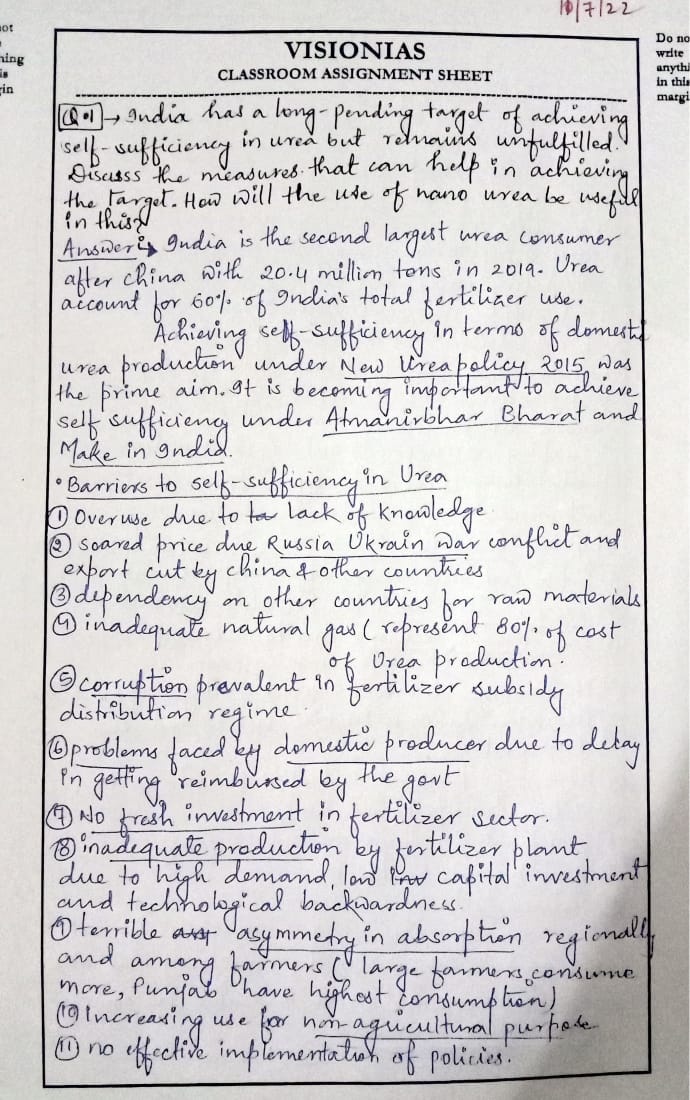 10/7/22
not
hing
is
gin
Do no
write
anythi
in this
margi
VISIONIAS
CLASSROOM ASSIGNMENT SHEET
Q.1 → India has a long-pending target of achieving
self-sufficiency in urea but remains unfulfilled.
Discuss the measures that can help in achieving
the target. How will the use of nano urea be useful
in this?
Answer:→ India is the second largest urea consumer
after china with 20.4 million tons in 2019. Urea
account for 60% of India's total fertilizer use.
Achieving self-sufficiency in terms of domesti
urea production under New Urea policy 2015, was
the prime aim. It is becoming important to achieve
self sufficiency under Atmanirbhar Bharat and
Make in India.
• Barriers to self-sufficiency in Urea
① Overuse due to lack of knowledge
② soared price due Russia Ukrain war conflict and
export cut by china & other countries
③ dependency on other countries for raw materials
④ inadequate natural gas ( represent 80% of cost
of Urea production.
⑤ corruption prevalent in fertilizer subsidy
distribution regime.
⑥ problems faced by domestic producer due to delay
in getting reimbursed by the govt
⑦ No fresh investment in fertilizer sector.
⑧ inadequate production by fertilizer plant
due to high demand, low capital investment
and technological backwardness.
⑨ terrible asymmetry in absorption regionally
and among farmers ( large farmers consume
more, Punjab have highest consumption)
⑩ Increasing use for non-agricultural purpose
⑪ no effective implementation of policies.